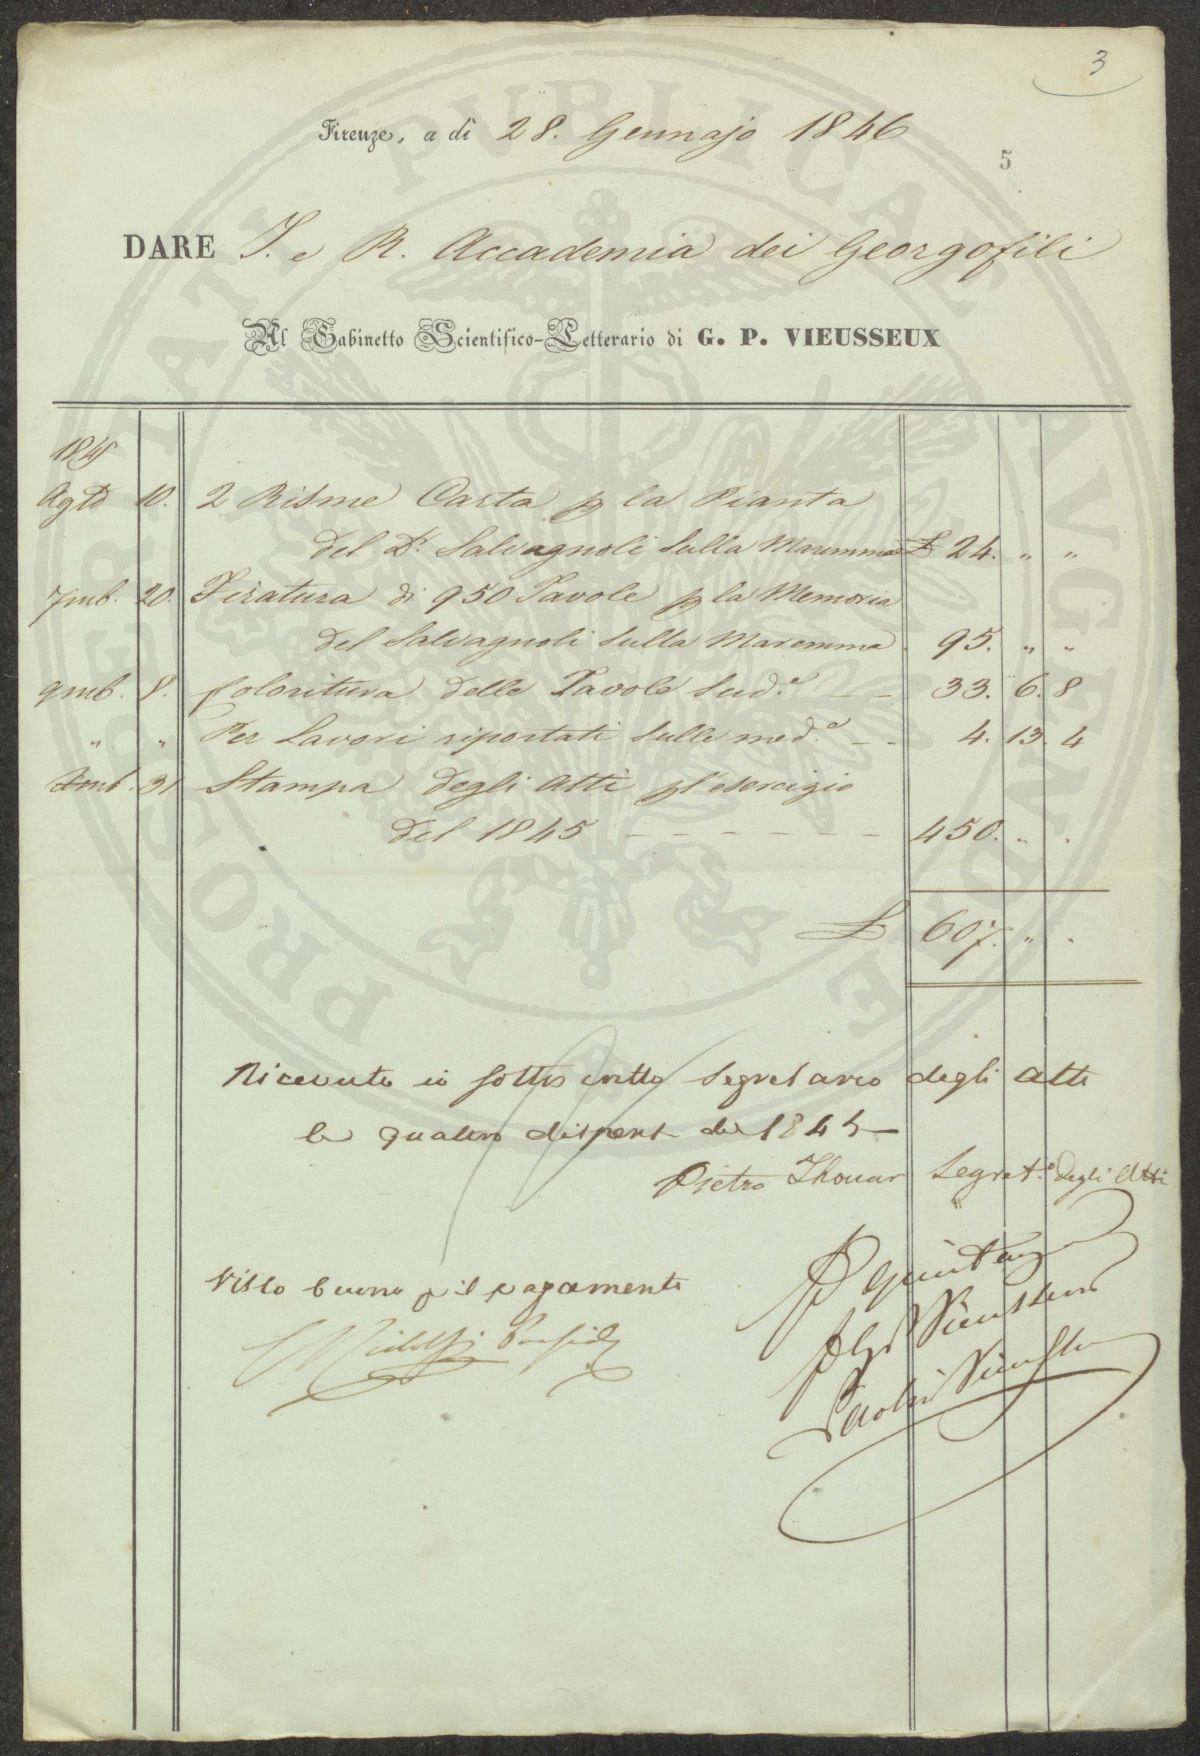 3
Firenze, a dì 28. Gennajo 1846
5
DARE I. e R. Accademia dei Georgofili
Al Gabinetto Scientifico-Letterario di G. P. VIEUSSEUX
1845
Agto 10. 2 Risme Carta p la Pianta
del Dr. Salvagnoli sulla Maremma £ 24. " "
7mb. 20. Tiratura di 950 Tavole p la Memoria
del Salvagnoli sulla Maremma 95. " "
9mb. 8. Coloritura delle Tavole sud.e 33. 6. 8
" " Per Lavori riportati sulle med.e 4. 13. 4
Xmb. 31 Stampa degli Atti p l'esercizio
del 1845 450. " "
£ 607. " "
Ricevute io sottoscritto Segretario degli Atti
le quattro dispense del 1845
Pietro Thouar Segret.o degli Atti
Visto buono p il pagamento
Ridolfi Presid
Vieusseux
Vieusseux
PROSPERITATI PVBLICAE AVGENDAE